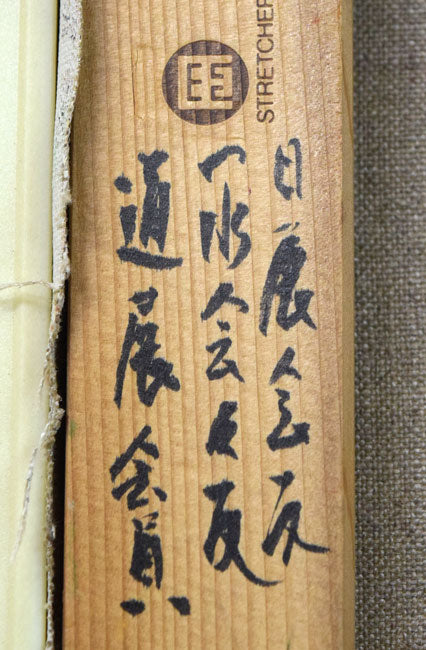 STRETCHER
日展会友
一水会々友
道展会員